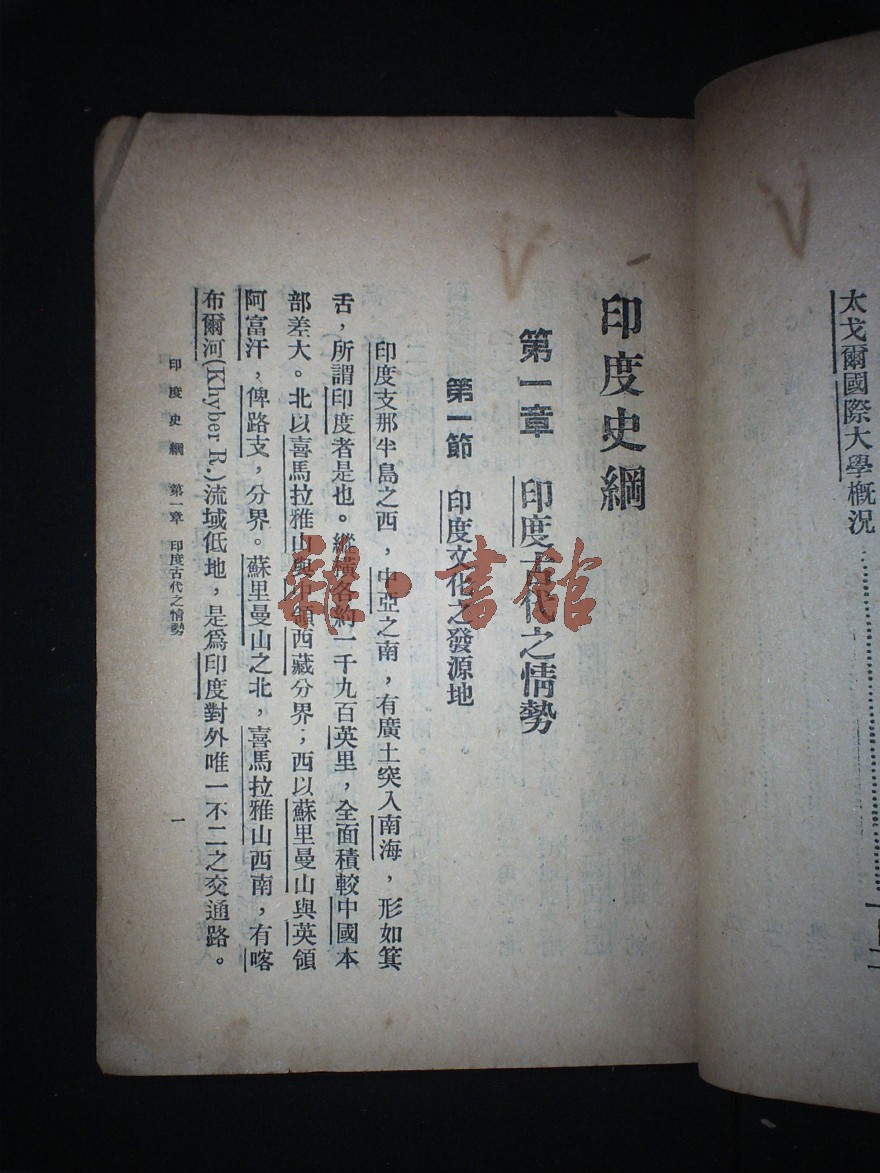 太戈爾國際大學概況
印度史綱
第一章 印度古代之情勢
第一節 印度文化之發源地
印度支那半島之西，中亞之南，有廣土突入南海，形如箕
舌，所謂印度者是也。縱橫各約一千九百英里，全面積較中國本
部差大。北以喜馬拉雅山與中領西藏分界；西以蘇里曼山與英領
阿富汗，俾路支，分界。蘇里曼山之北，喜馬拉雅山西南，有喀
布爾河(Khyber R.)流域低地，是爲印度對外唯一不二之交通路。
印度史綱 第一章 印度古代之情勢
一
雜·書館